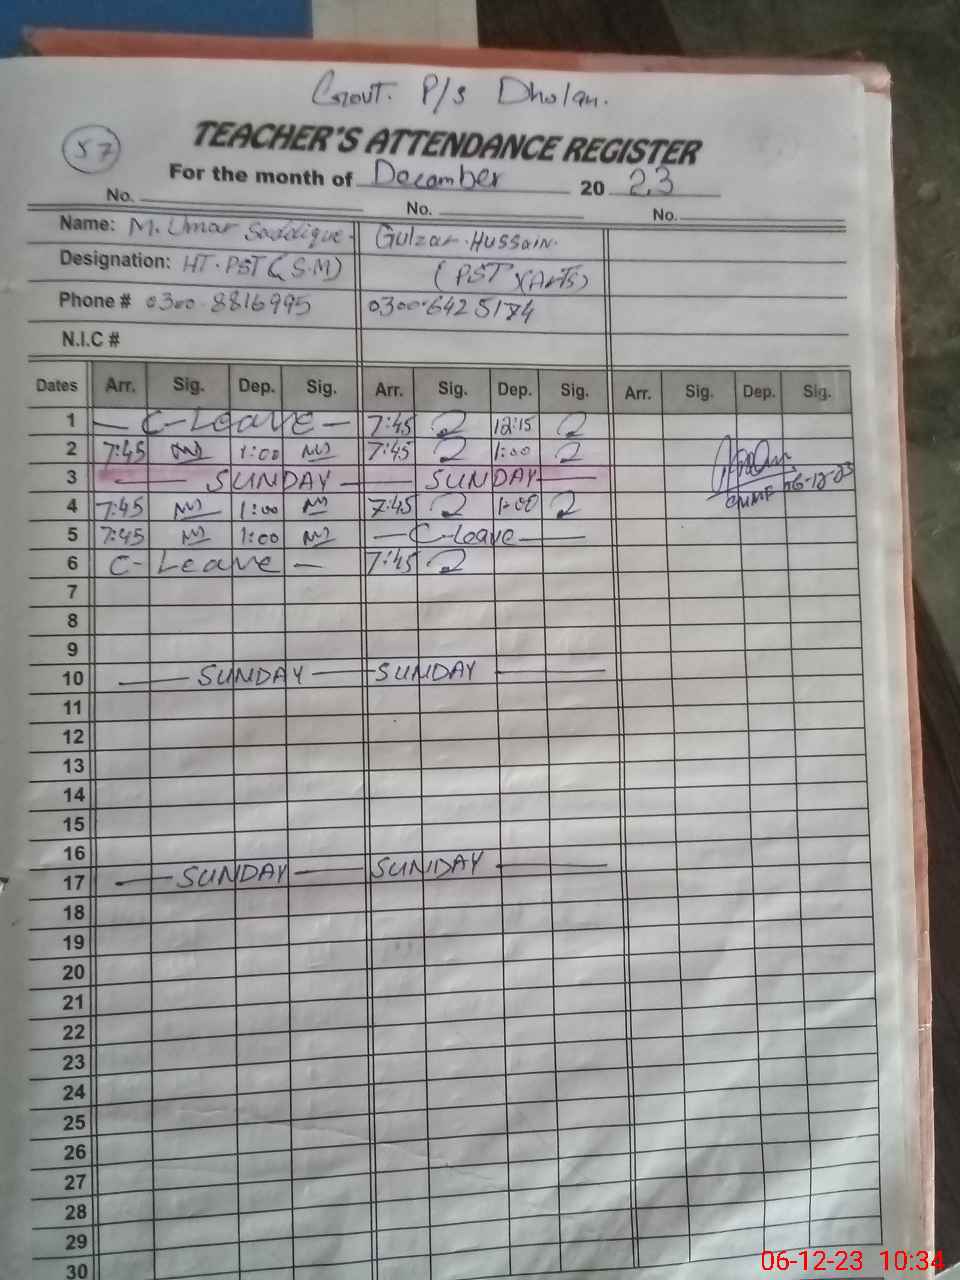 Govt. P/s Dholan.
57
TEACHER'S ATTENDANCE REGISTER
For the month of December 20 23
No. No. No.
Name: M. Umar Saddique. Gulzar Hussain.
Designation: HT. PST (S.M) (PST) (Arts)
Phone # 0300-8816995 0300-6425174
N.I.C #
Dates Arr. Sig. Dep. Sig. Arr. Sig. Dep. Sig. Arr. Sig. Dep. Sig.
1 — C-Leave — 7:45 12:15
2 7:45 1:00 7:45 1:00
3 — SUNDAY — SUNDAY —
4 7:45 1:00 7:45 1:00
06-12-23
5 7:45 1:00 — C-Leave —
6 C-Leave — 7:45
7
8
9
10 — SUNDAY — SUNDAY —
11
12
13
14
15
16
17 — SUNDAY — SUNDAY —
18
19
20
21
22
23
24
25
26
27
28
29
30
06-12-23 10:34